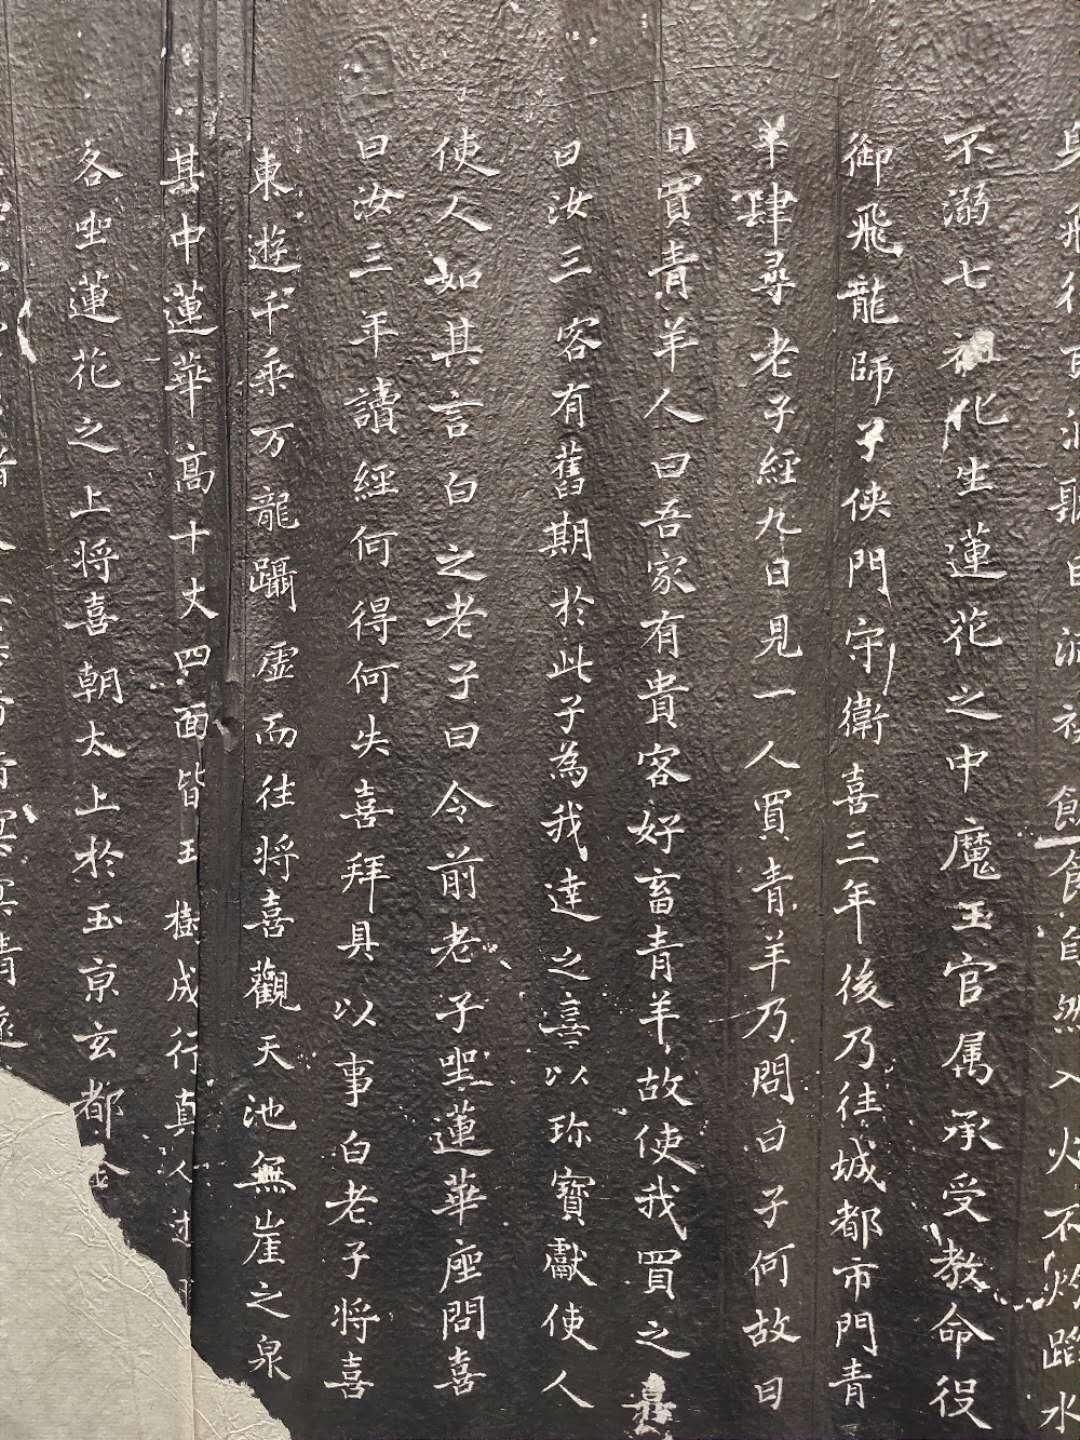 身飛行百洞聽日液被飲食自然入火不灼蹈水
不溺七祖化生蓮花之中魔王官属承受教命役
御飛龍師子侠門守衛喜三年後乃往城都市門青
羊肆尋老子經九日見一人買青羊乃問曰子何故日
日買青羊人曰吾家有貴客好畜青羊故使我買之喜
曰汝三客有舊期於此子為我達之喜以珎寶獻使人
使人如其言白之老子曰令前老子坐蓮華座問喜
曰汝三年讀經何得何失喜拜具以事白老子将喜
東遊千乘万龍躡虚而往将喜觀天池無崖之泉
其中蓮華高十丈四面皆玉樹成行真人
各坐蓮花之上将喜朝太上於玉京玄都金